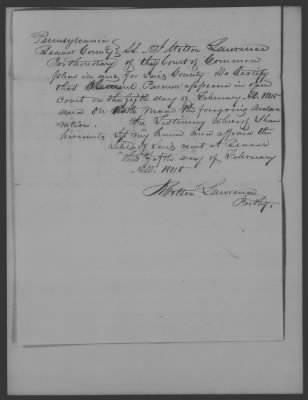 Pennsylvania }
Beaver County } SS. I Milton Lawrence
Prothonotary of the Court of Common
pleas in and for said County Do Certify
that appeared in open
Court on the fifth day of February AD. 1845
and on Oath made the foregoing Decla
ration. In Testimony Whereof I have
hereunto Set my hand and affixed the
Seal of said Court at Beaver
this fifth day of February
AD. 1845
Milton Lawrence
Prothy.